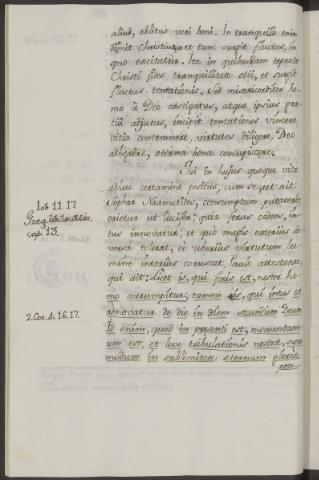 aliud, oblitus veri boni. In tranquillo enim
dormit Christus, et tunc surgit fluctus, in
quo excitatur. Ita in quibusdam torpescit
Christi fides tranquillitate otii, et surgit
fluctus tentationis. Sed misericorditer ho-
mo à Deo castigatus, atque ipsius gra-
tiâ adjutus, incipit tentationes vincere,
vitia contemnere, virtutes diligere, Deo
adhærere, æterna bona concupiscere.
Qui in hujus quoque vitæ
adhuc certamine positus, cum se, ut ait
Job 11. 17.
Sophar Naamatites, consumptum putaverit,
Greg.
cap. 13.
orietur ut lucifer; quia foras cadens, in-
tus innovatur; et quò magis exterius ad-
versa tolerat, eò uberius virtutum lu-
mine interius coruscat, Paulo attestante,
qui ait: Licet is, qui foris est, noster ho-
2. Cor. 4. 16. 17.
mo corrumpitur; tamen is, qui intus est
renovatur de die in diem secundum Deum.
Id enim, quod in præsenti est, momentane-
um est, et leve tribulationis nostræ, supra
modum in sublimitate æternum gloriæ
pon-